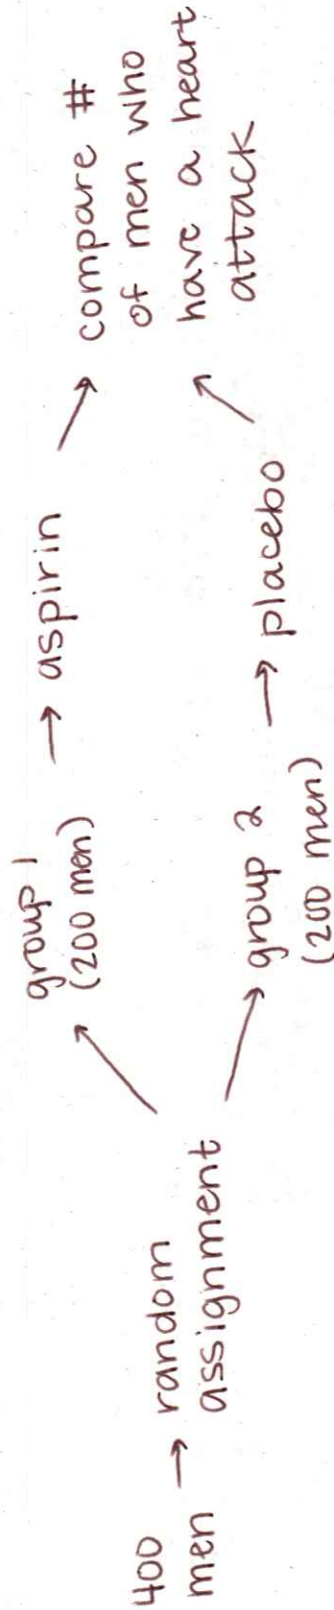 400
men → random
assignment
group 1
(200 men)
→ aspirin
group 2
(200 men)
→ placebo
compare #
of men who
have a heart
attack